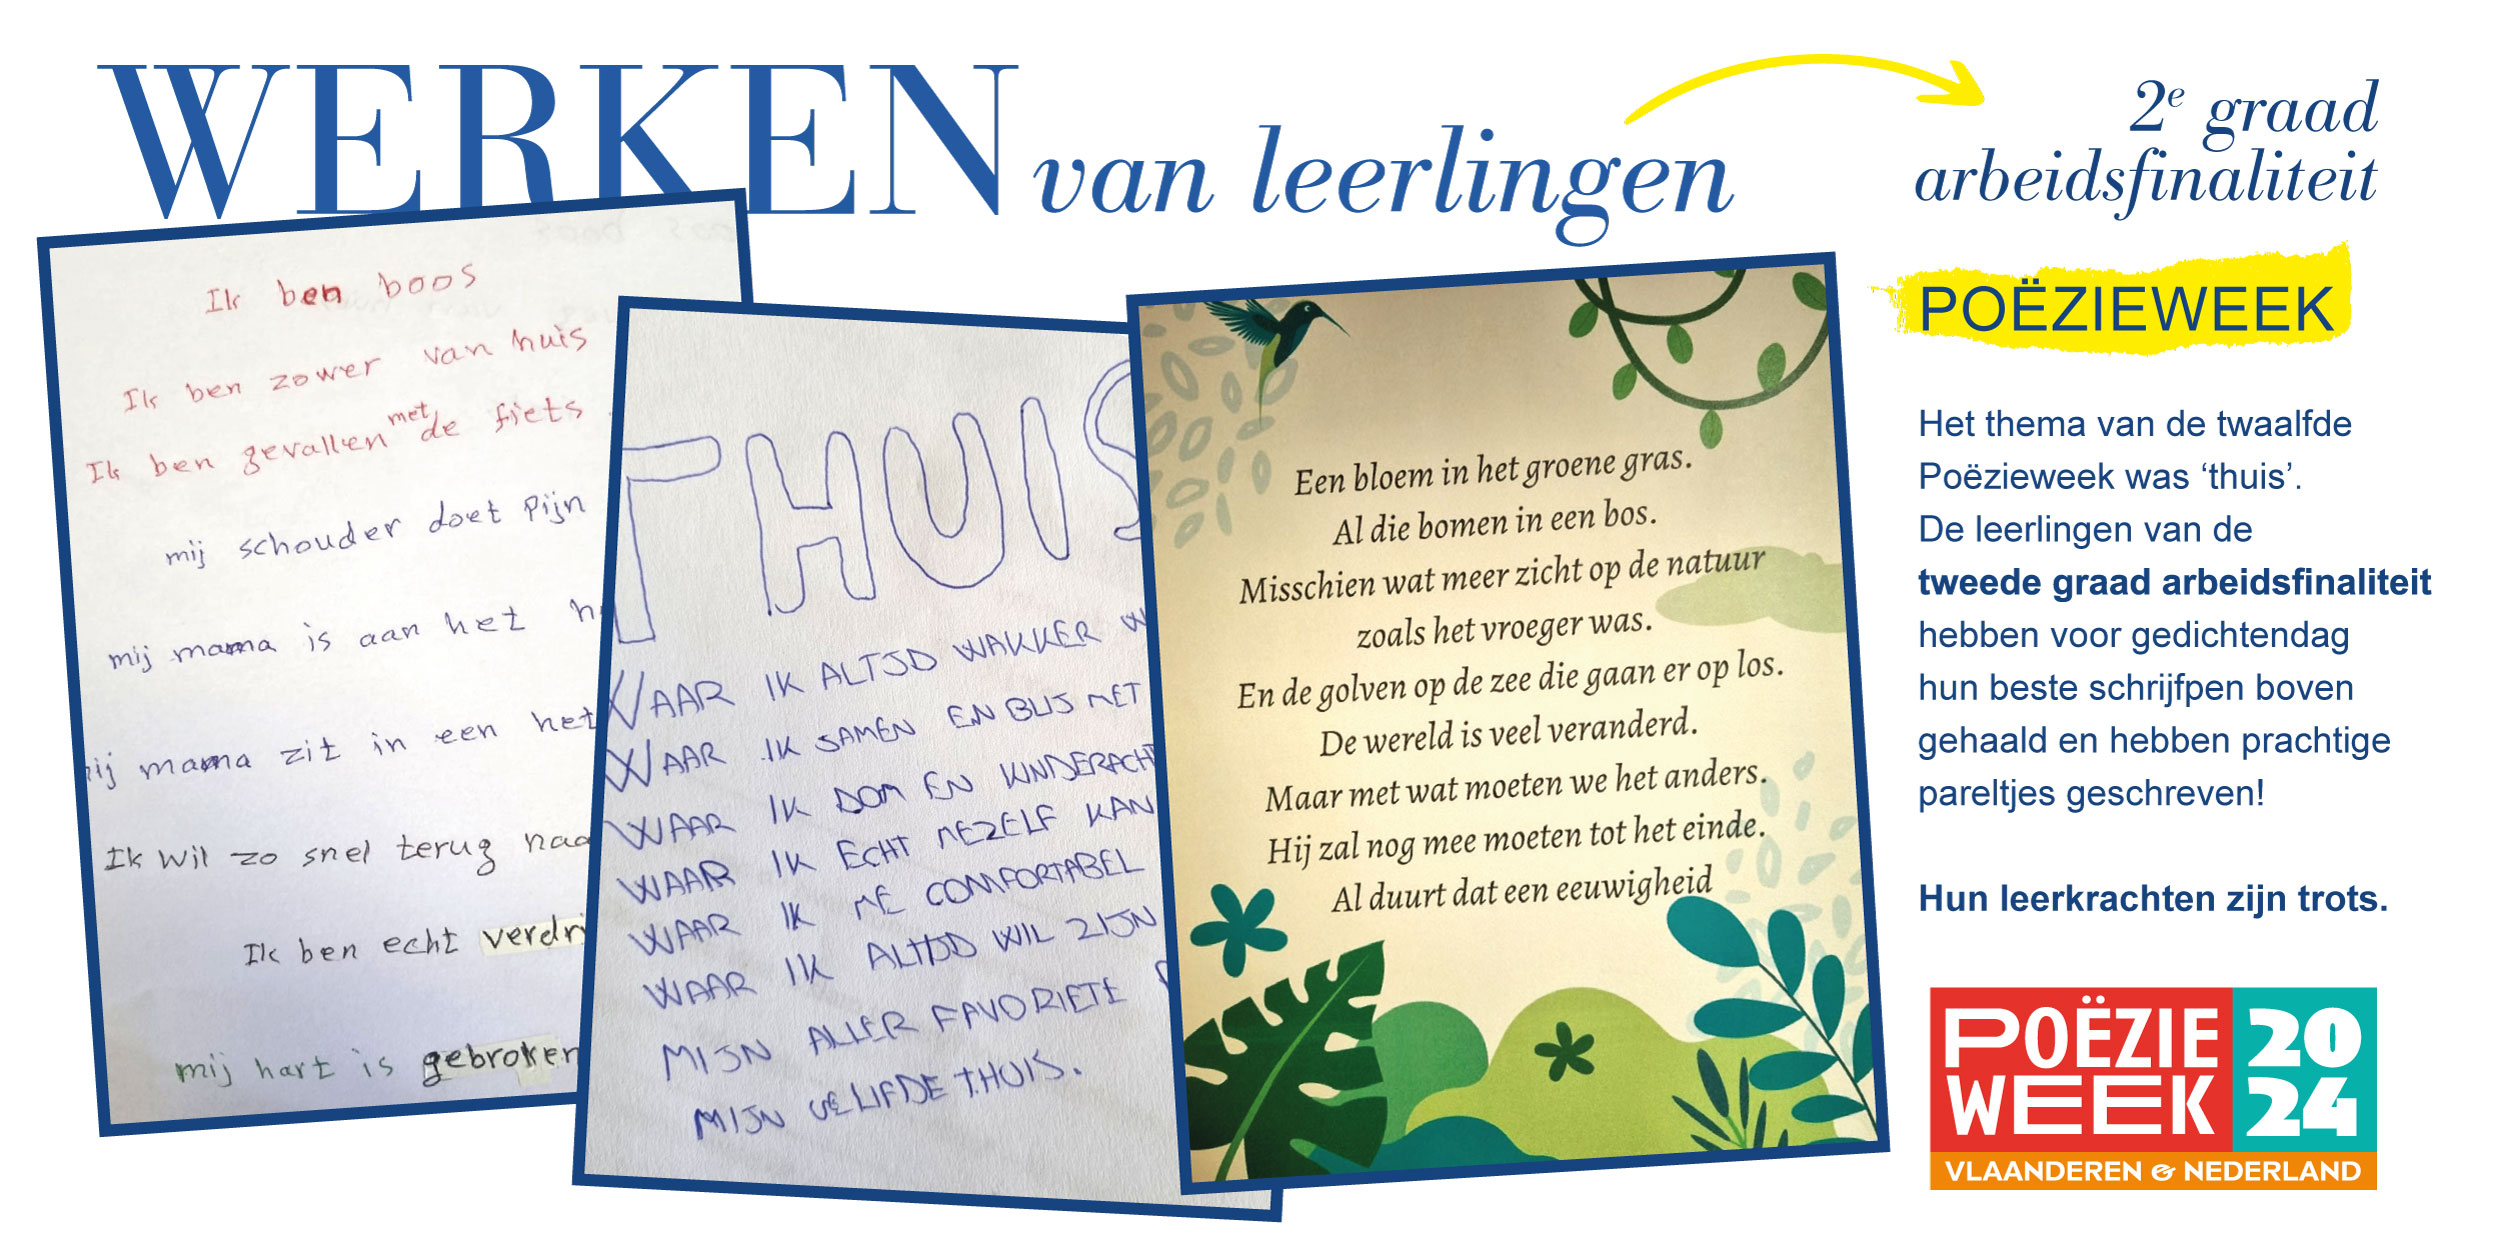 WERKEN van leerlingen
2e graad
arbeidsfinaliteit
Ik ben boos
Ik ben zower van huis
Ik ben gevallen met de fiets
mij schouder doet pijn
mij mama is aan het
mij mama zit in een het
Ik wil zo snel terug
Ik ben echt
mij hart is gebroken
THUIS
WAAR IK ALTIJD WAKKER
WAAR IK SAMEN EN BLIJ MET
WAAR IK DOM EN
WAAR IK ECHT MEZELF KAN
WAAR IK ME COMFORTABEL
WAAR IK ALTIJD WIL ZIJN
MIJN ALLER FAVORIETE
MIJN GELIEFDE THUIS.
Een bloem in het groene gras.
Al die bomen in een bos.
Misschien wat meer zicht op de natuur
zoals het vroeger was.
En de golven op de zee die gaan er op los.
De wereld is veel veranderd.
Maar met wat moeten we het anders.
Hij zal nog mee moeten tot het einde.
Al duurt dat een eeuwigheid
POËZIEWEEK
Het thema van de twaalfde
Poëzieweek was ‘thuis’.
De leerlingen van de
tweede graad arbeidsfinaliteit
hebben voor gedichtendag
hun beste schrijfpen boven
gehaald en hebben prachtige
pareltjes geschreven!
Hun leerkrachten zijn trots.
POËZIE
WEEK
20
24
VLAANDEREN & NEDERLAND